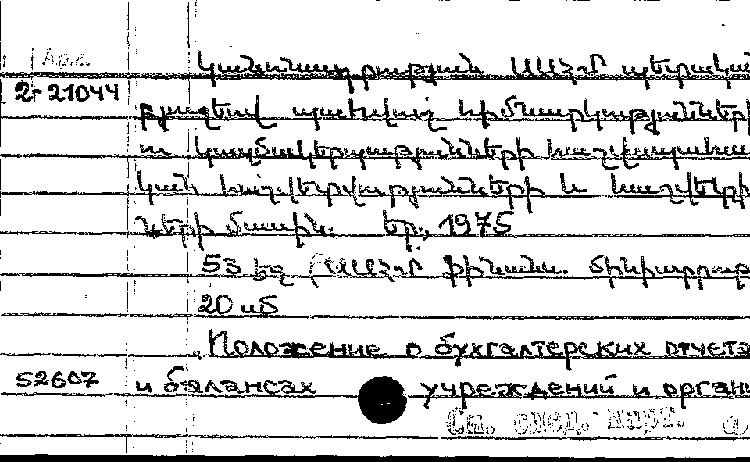 2-21044
Կանոնադրություն ՍՍՀՄ պետական
բյուջեով պահվող հիմնարկությունների
ու կազմակերպությունների հաշվապահա
կան հաշվետվությունների և հաշվեկշի
ռների մասին. Եր., 1975
53 էջ (ՍՍՀՄ ֆինանս. մինիստրութ
20 սմ
Положение о бухгалтерских отчета
52607 и балансах учреждений и орган
См. спец.